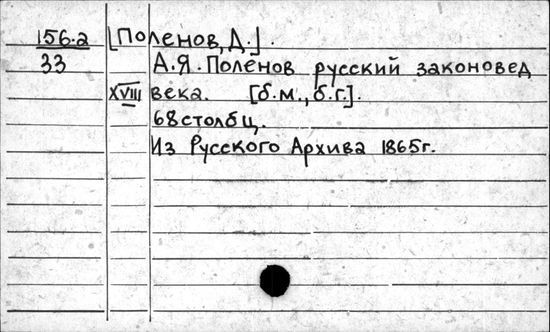 156.2 [Поленов, Д.].
33 А.Я. Поленов русский законовед
XVIII века. [б.м., б.г.].
68 столбц.
Из Русского Архива 1865г.